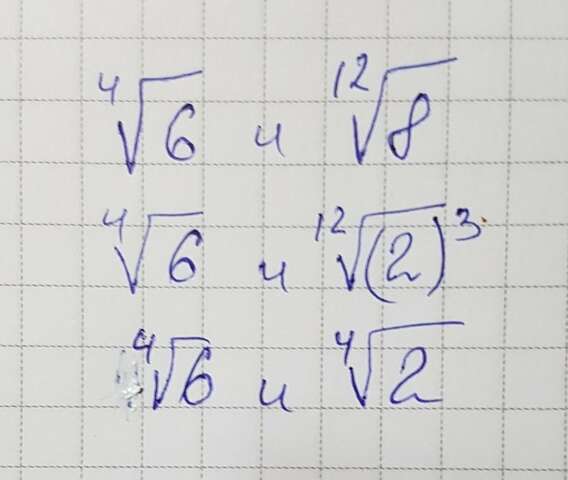 ⁴√6 и ¹²√8
⁴√6 и ¹²√(2)³
⁴√6 и ⁴√2